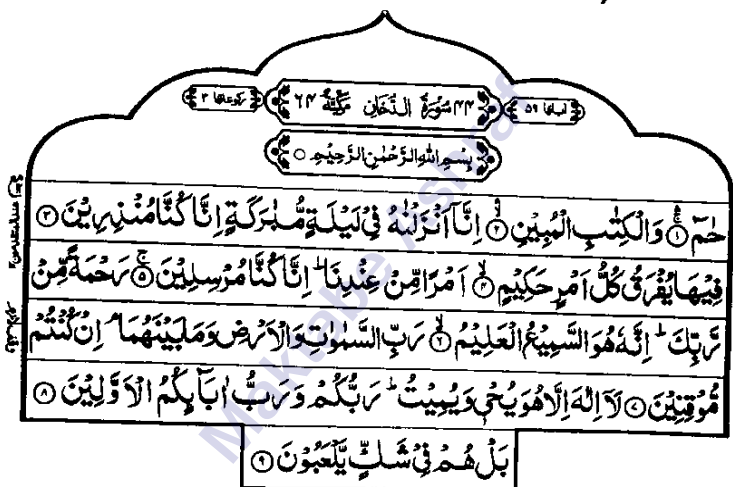 اٰیاتھا ۵۹
۴۴ سُوْرَةُ الدُّخَانِ مَكِّيَّةٌ ۶۴
رکوعاتھا ۳
بِسْمِ اللّٰهِ الرَّحْمٰنِ الرَّحِيْمِ ○
حٰمٓ ۚۛ ۝۱ وَالْكِتٰبِ الْمُبِيْنِ ۙۛ ۝۲ اِنَّاۤ اَنْزَلْنٰهُ فِيْ لَيْلَةٍ مُّبٰرَكَةٍ اِنَّا كُنَّا مُنْذِرِيْنَ ۝۳
فِيْهَا يُفْرَقُ كُلُّ اَمْرٍ حَكِيْمٍ ۙ ۝۴ اَمْرًا مِّنْ عِنْدِنَا ؕ اِنَّا كُنَّا مُرْسِلِيْنَ ۚ ۝۵ رَحْمَةً مِّنْ
رَّبِّكَ ؕ اِنَّهٗ هُوَ السَّمِيْعُ الْعَلِيْمُ ۙ ۝۶ رَبِّ السَّمٰوٰتِ وَالْاَرْضِ وَمَا بَيْنَهُمَا ۘ اِنْ كُنْتُمْ
مُّوْقِنِيْنَ ۝۷ لَاۤ اِلٰهَ اِلَّا هُوَ يُحْيٖ وَيُمِيْتُ ؕ رَبُّكُمْ وَرَبُّ اٰبَآىِٕكُمُ الْاَوَّلِيْنَ ۝۸
بَلْ هُمْ فِيْ شَكٍّ يَّلْعَبُوْنَ ۝۹
Maktabe Ashraf